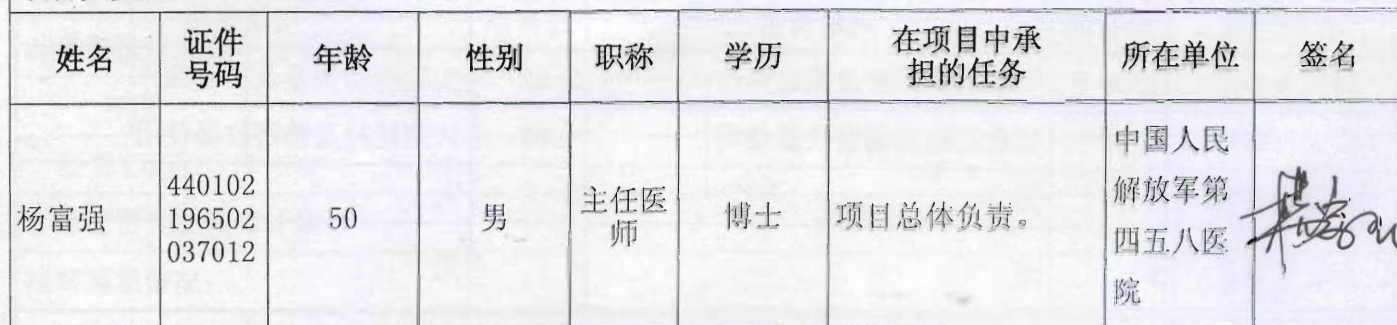 姓名 证件号码 年龄 性别 职称 学历 在项目中承担的任务 所在单位 签名
杨富强 440102196502037012 50 男 主任医师 博士 项目总体负责。 中国人民解放军第四五八医院